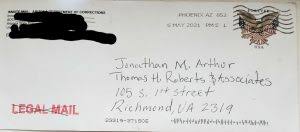 DEPARTMENT OF CORRECTIONS
PHOENIX AZ 852
5 MAY 2021 PM 5 L
USA
Jonathan M. Arthur
Thomas H Roberts & Associates
105 S. 1st street
Richmond, VA 2319
LEGAL MAIL
23219-371505